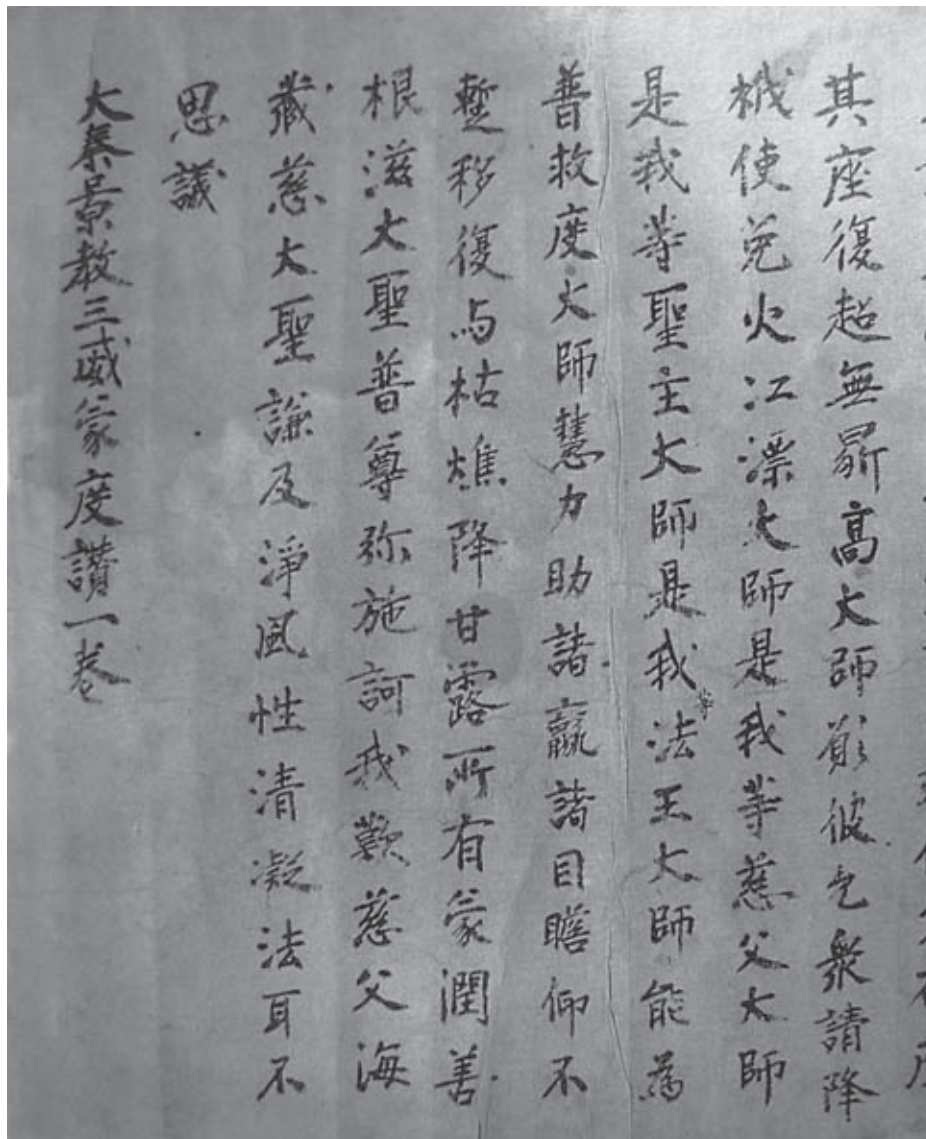 其座復超無鼎高大師願彼乞衆請降
栰使免火江漂大師是我等慈父大師
是我等聖主大師是我等法王大師能為
普救度大師慧力助諸羸諸目瞻仰不
蹔移復与枯燋降甘露所有蒙潤善
根滋大聖普尊弥施訶我歎慈父海
藏慈大聖謙及淨風性清凝法耳不
思議
大秦景教三威蒙度讚一卷